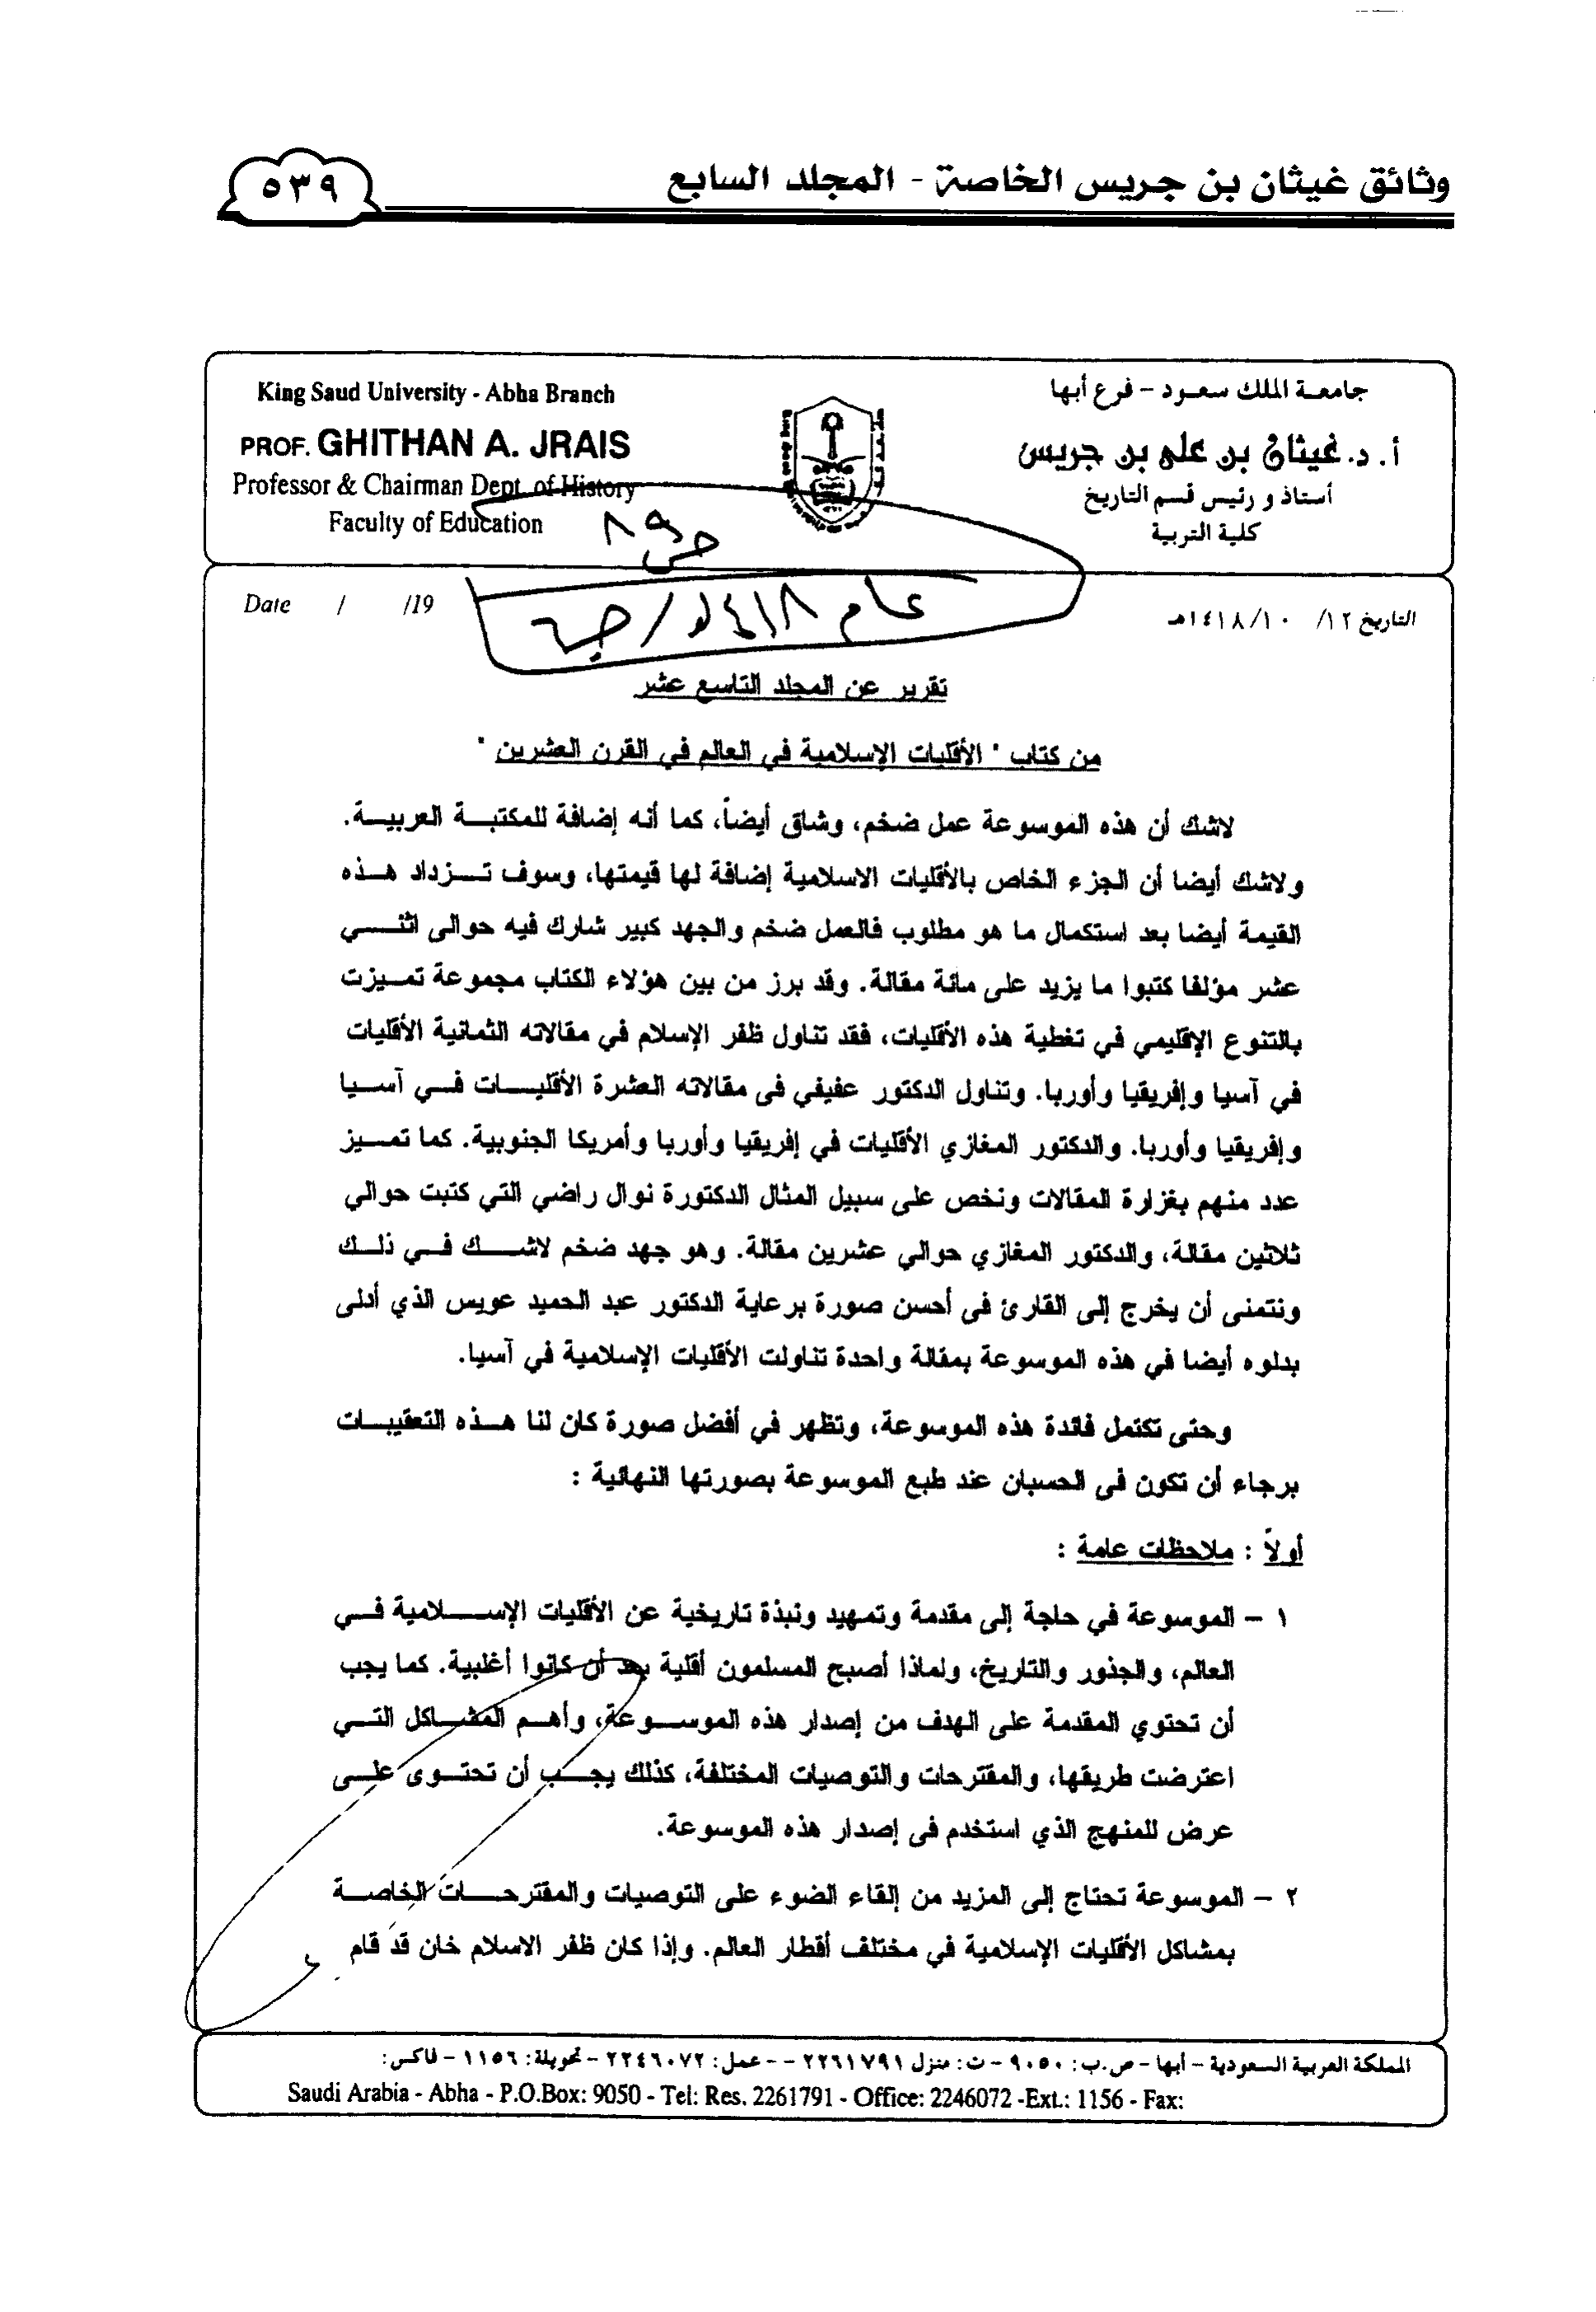 وثائق غيثان بن جريس الخاصة - المجلد السابع
٥٣٩
جامعة الملك سعود - فرع أبها
أ. د. غيثان بن على بن جريس
أستاذ و رئيس قسم التاريخ
كلية التربية
King Saud University - Abha Branch
PROF. GHITHAN A. JRAIS
Professor & Chairman Dept. of History
Faculty of Education
التاريخ ١٢/ ١٤١٨/١٠هـ
Date / /19
تقرير عن المجلد التاسع عشر
من كتاب " الأقليات الإسلامية في العالم في القرن العشرين "
لاشك أن هذه الموسوعة عمل ضخم، وشاق أيضاً، كما أنه إضافة للمكتبة العربية.
ولاشك أيضا أن الجزء الخاص بالأقليات الاسلامية إضافة لها قيمتها، وسوف تزداد هذه
القيمة أيضا بعد استكمال ما هو مطلوب فالعمل ضخم والجهد كبير شارك فيه حوالى اثني
عشر مؤلفا كتبوا ما يزيد على مائة مقالة. وقد برز من بين هؤلاء الكتاب مجموعة تميزت
بالتنوع الإقليمي في تغطية هذه الأقليات، فقد تناول ظفر الإسلام في مقالاته الثمانية الأقليات
في آسيا وإفريقيا وأوربا. وتناول الدكتور عفيفي فى مقالاته العشرة الأقليات في آسيا
وإفريقيا وأوربا. والدكتور المغازي الأقليات في إفريقيا وأوربا وأمريكا الجنوبية. كما تميز
عدد منهم بغزارة المقالات ونخص على سبيل المثال الدكتورة نوال راضي التي كتبت حوالي
ثلاثين مقالة، والدكتور المغازي حوالي عشرين مقالة. وهو جهد ضخم لاشك في ذلك
ونتمنى أن يخرج إلى القارئ فى أحسن صورة برعاية الدكتور عبد الحميد عويس الذي أدلى
بدلوه أيضا في هذه الموسوعة بمقالة واحدة تناولت الأقليات الإسلامية في آسيا.
وحتى تكتمل فائدة هذه الموسوعة، وتظهر في أفضل صورة كان لنا هذه التعقيبات
برجاء أن تكون فى الحسبان عند طبع الموسوعة بصورتها النهائية :
أولاً : ملاحظات عامة :
١ - الموسوعة في حاجة إلى مقدمة وتمهيد ونبذة تاريخية عن الأقليات الإسلامية في
العالم، والجذور والتاريخ، ولماذا أصبح المسلمون أقلية بعد أن كانوا أغلبية. كما يجب
أن تحتوي المقدمة على الهدف من إصدار هذه الموسوعة، وأهم المشاكل التي
اعترضت طريقها، والمقترحات والتوصيات المختلفة، كذلك يجب أن تحتوى على
عرض للمنهج الذي استخدم فى إصدار هذه الموسوعة.
٢ - الموسوعة تحتاج إلى المزيد من إلقاء الضوء على التوصيات والمقترحات الخاصة
بمشاكل الأقليات الإسلامية في مختلف أقطار العالم. وإذا كان ظفر الاسلام خان قد قام
المملكة العربية السعودية - أبها - ص.ب: ٩٠٥٠ - ت: منزل ٢٢٦١٧٩١ - - عمل: ٢٢٤٦٠٧٢ - تحويلة: ١١٥٦ - فاكس:
Saudi Arabia - Abha - P.O.Box: 9050 - Tel: Res. 2261791 - Office: 2246072 -Ext.: 1156 - Fax: